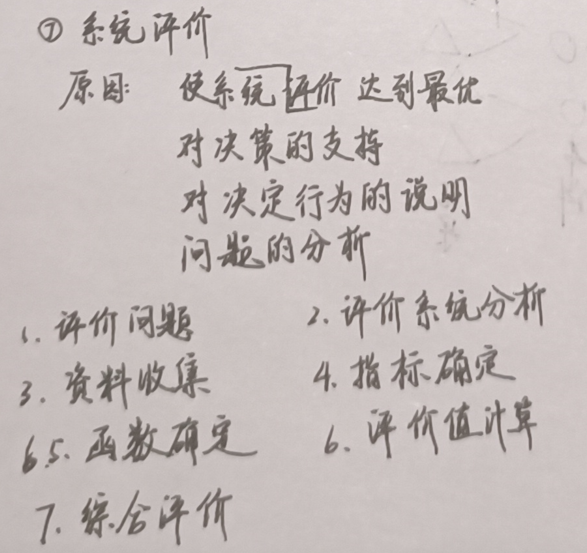 ⑦ 系统评价
原因: 使系统评价达到最优
对决策的支持
对决定行为的说明
问题的分析
1. 评价问题 2. 评价系统分析
3. 资料收集 4. 指标确定
6.5. 函数确定 6. 评价值计算
7. 综合评价